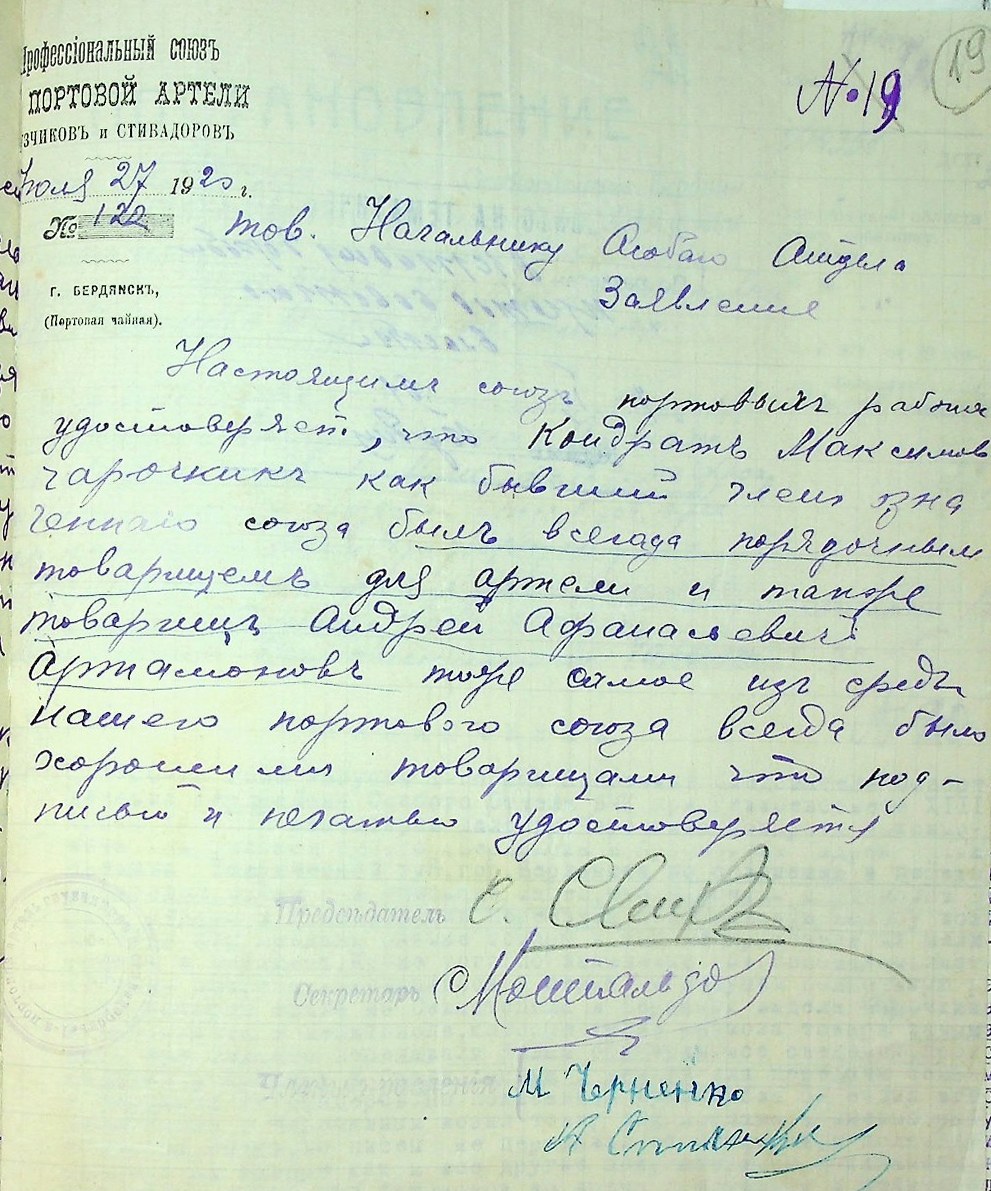 Профессіональный союзъ
ПОРТОВОЙ АРТЕЛИ
зчиковъ и СТИВАДОРОВЪ
Іюля 27 1920 г.
№ 122
г. БЕРДЯНСКЪ,
(Портовая чайная).
№ 19
19
Тов. Начальнику Особаго Отдела
Заявление
Настоящимъ союзъ портовыхъ рабочи
удостоверяет, что Кондратъ Максимов
Чарочкинъ как бывший член озна
ченнаго союза былъ всегда порядочным
товарищемъ для артели и также
товарищъ Андрей Афанасьевичъ
Артамоновъ тоже самое изъ среды
нашего портового союза всегда было
хорошими товарищами что под-
писью и печатью удостоверяется
Предсѣдатель С.
Секретарь
М Черненко
А